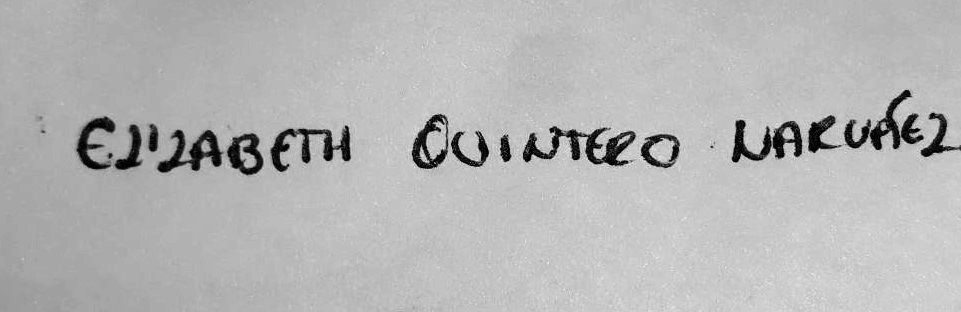 ELIZABETH QUINTERO NARVÁEZ